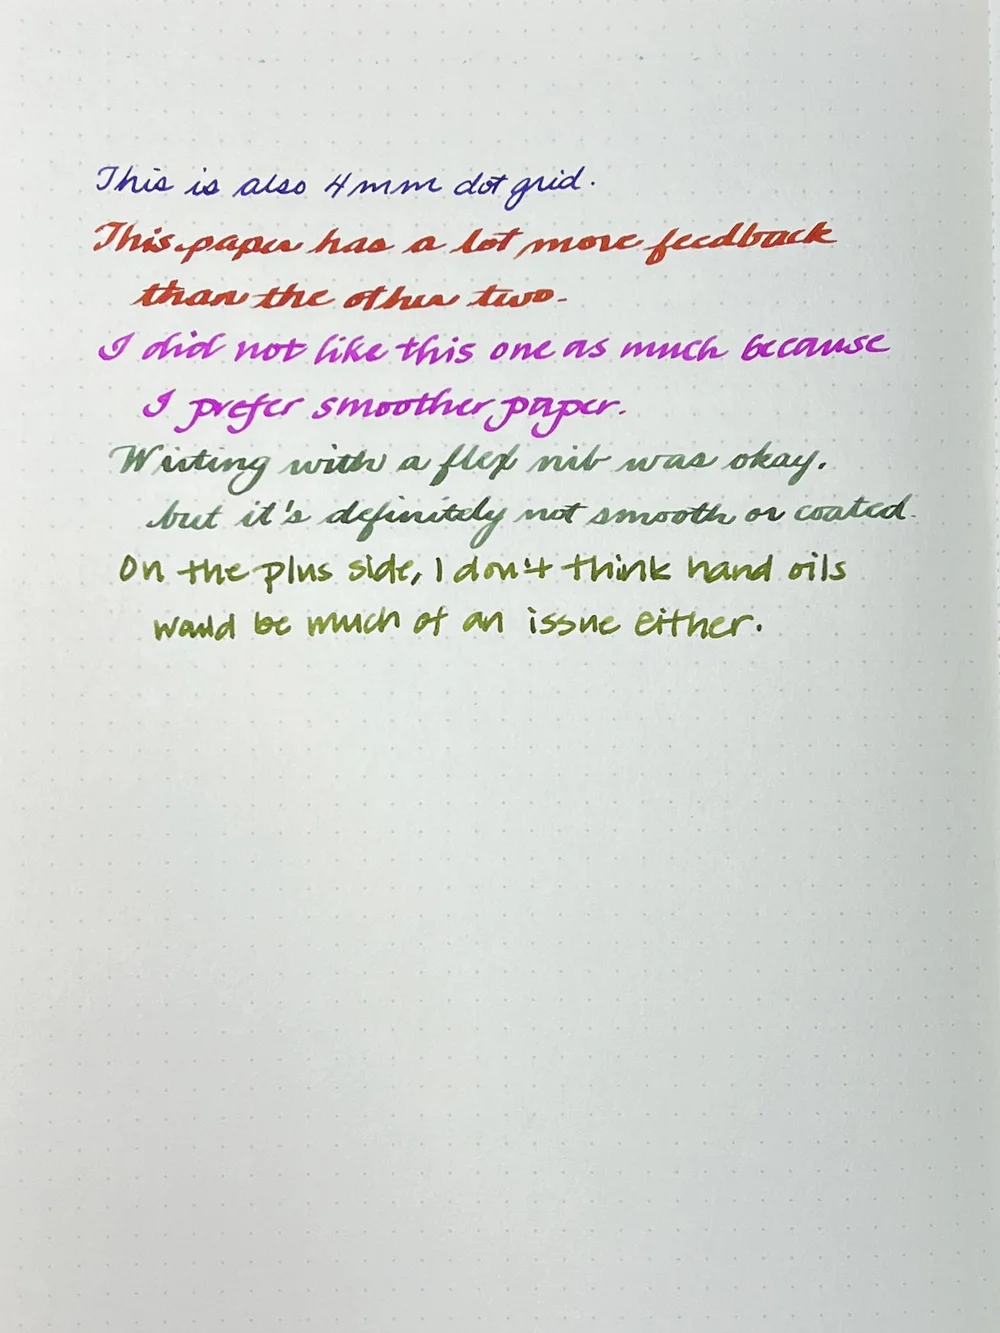 This is also 4mm dot grid.
This paper has a lot more feedback
than the other two.
I did not like this one as much because
I prefer smoother paper.
Writing with a flex nib was okay,
but it's definitely not smooth or coated.
On the plus side, I don't think hand oils
would be much of an issue either.